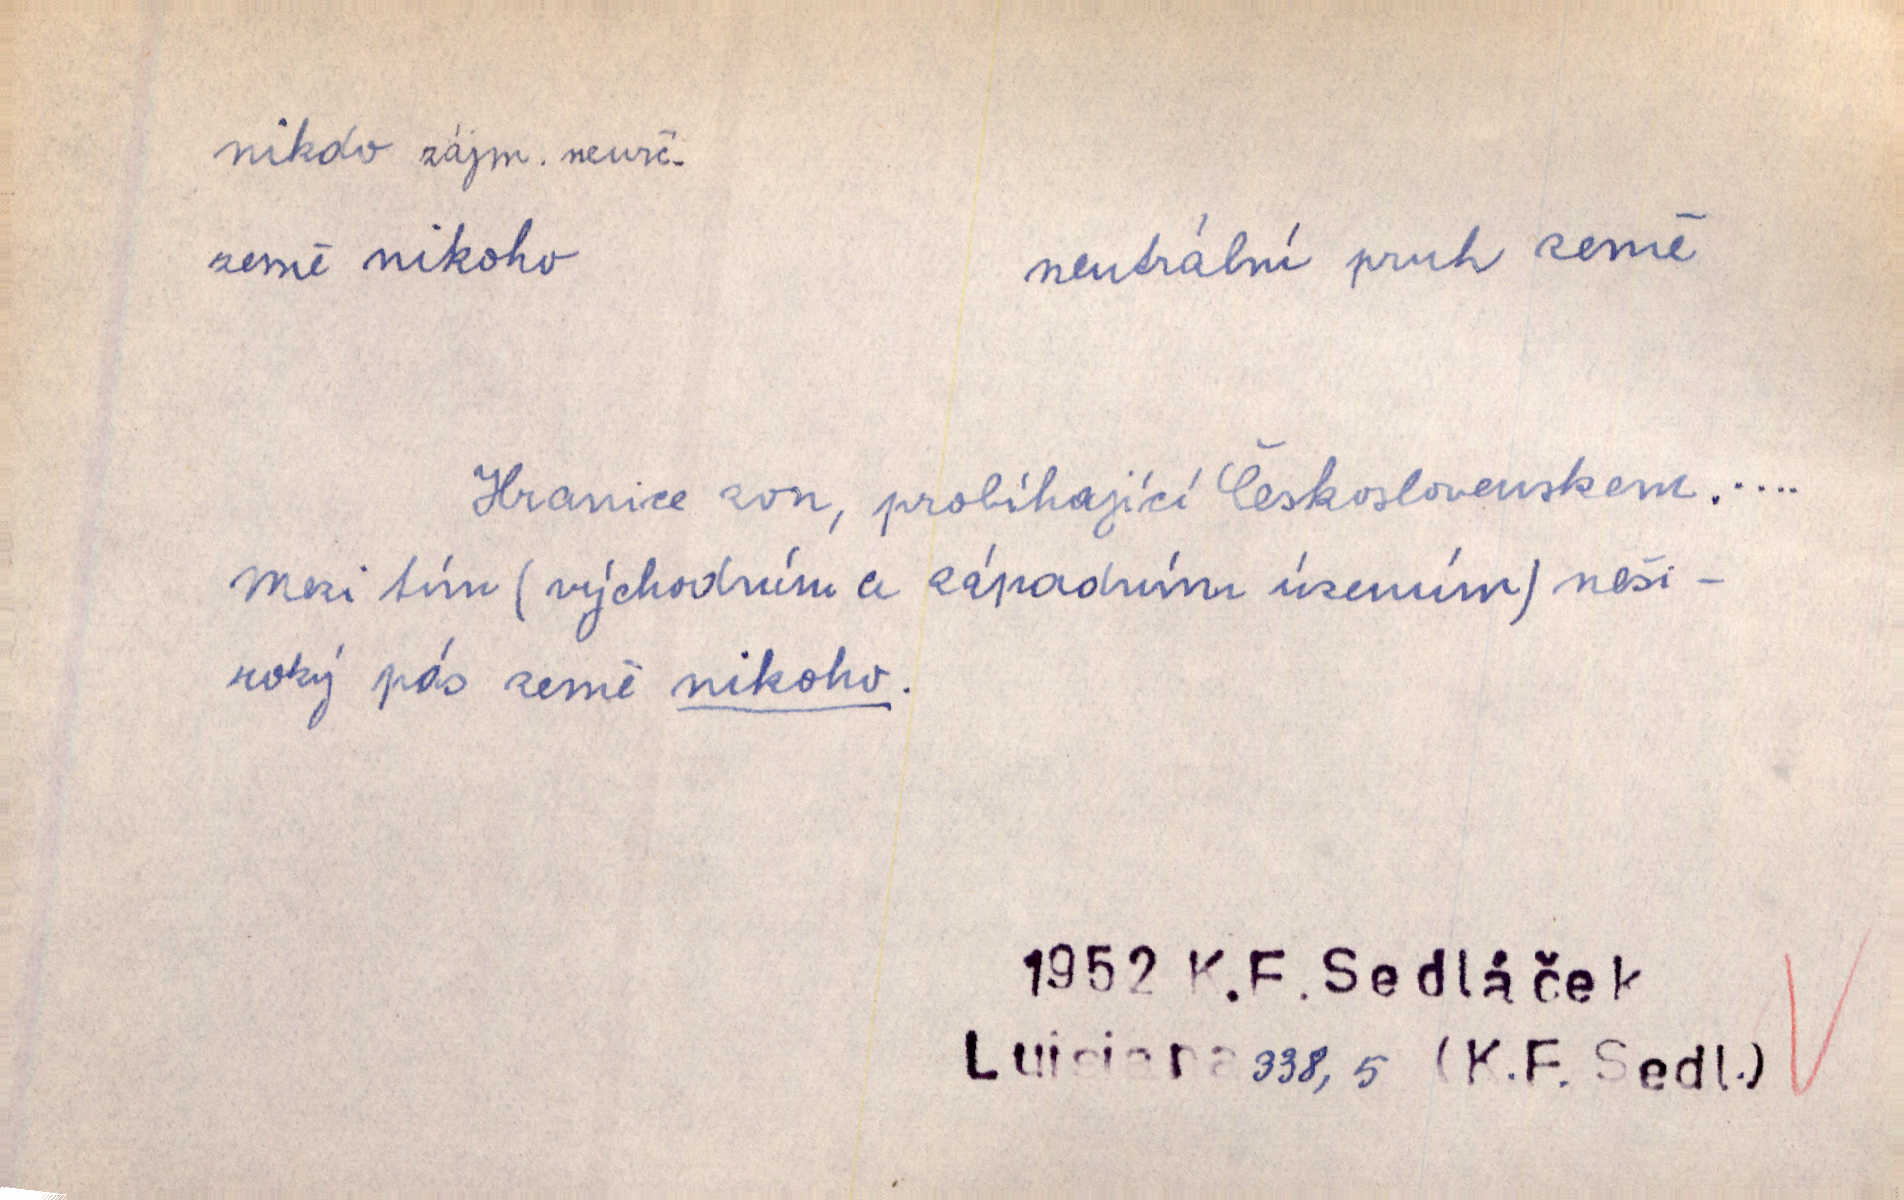 nikdo zájm. neurč.
země nikoho
neutrální pruh země
Hranice zon, probíhající Československem.....
Mezi tím (východním a západním územím) neši-
roký pás země nikoho.
1952 K.F. Sedláček
Luisiana 338, 5 (K.F. Sedl.)